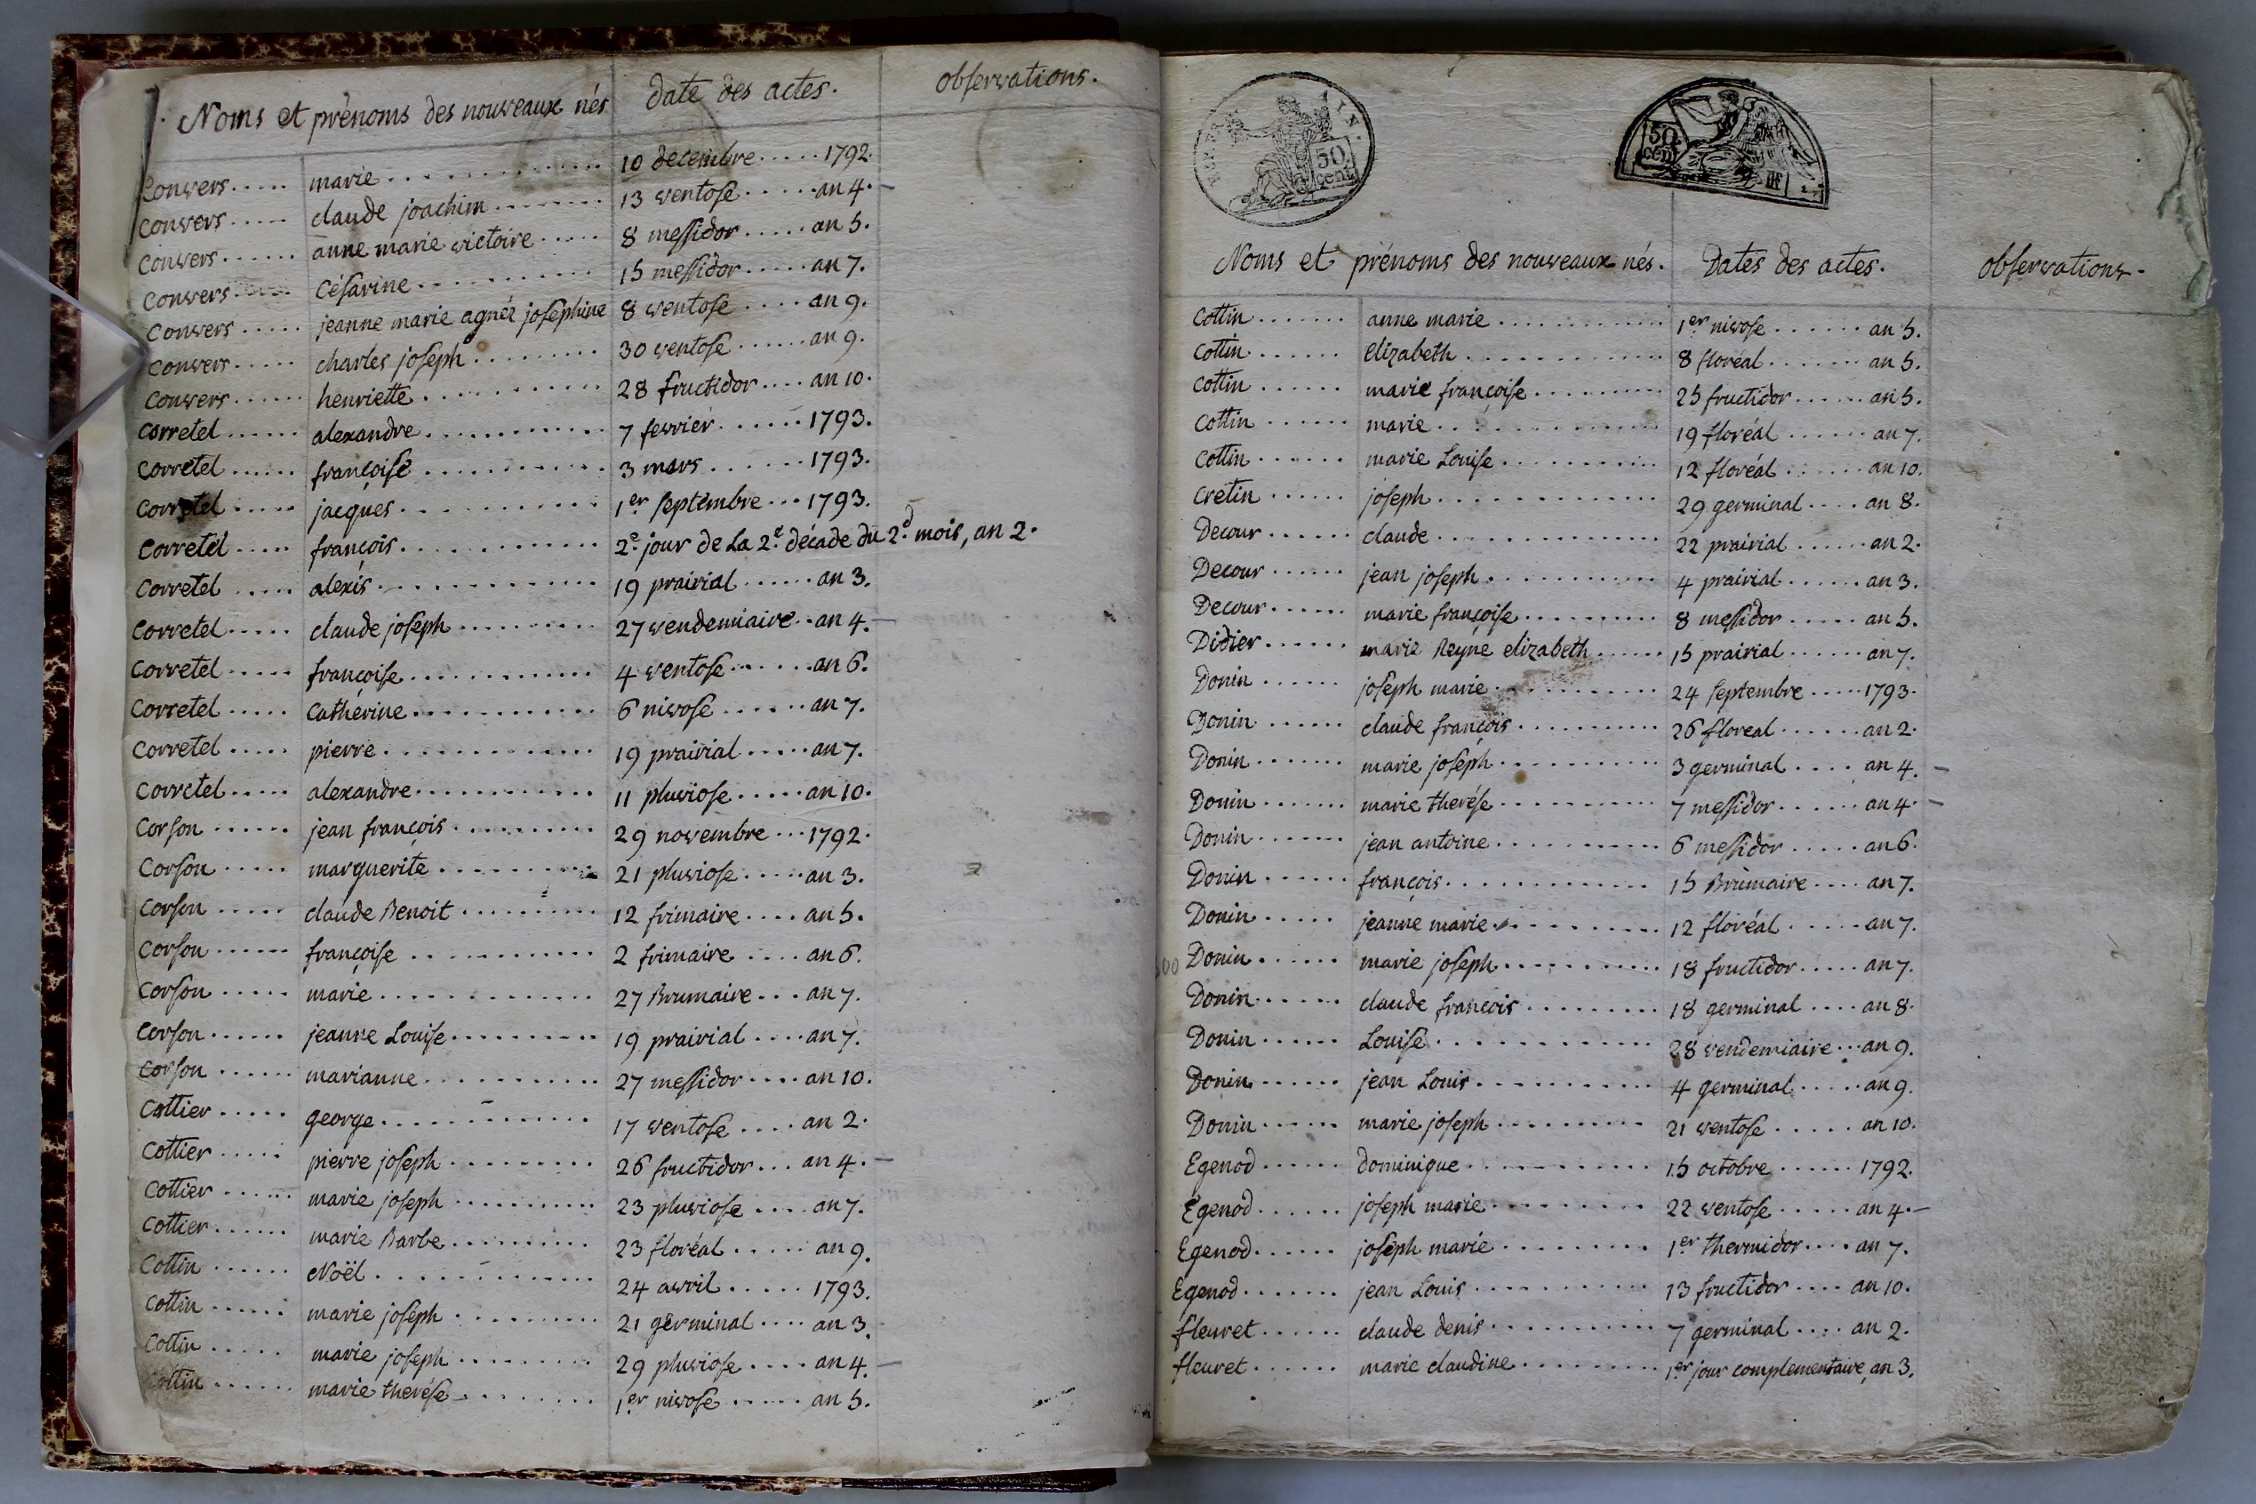 Noms et prénoms des nouveaux nés Date des actes. observations.
Convers..... marie............ 10 decembre.....1792.
Convers..... claude joachim....... 13 ventose......an 4.
Convers...... anne marie victoire..... 8 messidor.....an 5.
Convers..... Césarine.......... 15 messidor.....an 7.
Convers..... jeanne marie agnéz josephine 8 ventose....an 9.
Convers..... charles joseph......... 30 ventose......an 9.
Convers...... henriette.......... 28 fructidor....an 10.
Corretel...... alexandre........... 7 fevrier......1793.
Corretel...... françoise........... 3 mars......1793.
Corretel..... jacques............ 1er septembre...1793.
Corretel..... françois............ 2e. jour de La 2e. décade du 2d. mois, an 2.
Corretel..... alexis............. 19 prairial......an 3.
Corretel..... claude joseph......... 27 vendemiaire..an 4.
Corretel..... françoise............ 4 ventose......an 6.
Corretel..... Catherine........... 6 nivose......an 7.
Corretel..... pierre............. 19 prairial.....an 7.
Corretel..... alexandre........... 11 pluviose.....an 10.
Corson...... jean françois......... 29 novembre...1792.
Corson..... marguerite......... 21 pluviose.....an 3.
Corson..... claude Benoit......... 12 frimaire....an 5.
Corson...... françoise........... 2 frimaire....an 6.
Corson..... marie............. 27 Brumaire...an 7.
Corson...... jeanne Louise......... 19 prairial....an 7.
Corson...... marianne........... 27 messidor....an 10.
Cottier..... george............. 17 ventose....an 2.
Cottier..... pierre joseph......... 26 fructidor...an 4.
Cottier...... marie joseph.......... 23 pluviose....an 7.
Cottier...... marie Barbe......... 23 floréal.....an 9.
Cottin...... Noël............. 24 avril.....1793.
Cottin...... marie joseph.......... 21 germinal....an 3.
Cottin..... marie joseph......... 29 pluviose....an 4.
Cottin...... marie thérése......... 1er nivose.....an 5.
50 cent
50 cent
Noms et prénoms des nouveaux nés. Dates des actes. observations.
Cottin....... anne marie............ 1er nivose......an 5.
Cottin...... Elizabeth.............. 8 floreal.......an 5.
Cottin...... marie françoise......... 25 fructidor......an 5.
Cottin...... marie.............. 19 floréal......an 7.
Cottin...... marie Louise........... 12 floréal......an 10.
Cretin...... joseph............. 29 germinal....an 8.
Decour...... claude.............. 22 prairial......an 2.
Decour...... jean joseph............ 4 prairial......an 3.
Decour...... marie françoise.......... 8 messidor.....an 5.
Didier...... marie Reyne elizabeth...... 15 prairial......an 7.
Donin...... joseph marie........... 24 septembre.....1793.
Donin...... claude françois.......... 26 floreal......an 2.
Donin....... marie joseph........... 3 germinal....an 4.
Donin....... marie thérése.......... 7 messidor......an 4.
Donin....... jean antoine........... 6 messidor.....an 6.
Donin...... françois............. 15 Brumaire....an 7.
Donin..... jeanne marie.......... 12 floréal.....an 7.
Donin...... marie joseph........... 18 fructidor.....an 7.
Donin...... claude françois......... 18 germinal....an 8.
Donin...... Louise............. 28 vendemiaire...an 9.
Donin...... jean Louis............ 4 germinal.....an 9.
Donin...... marie joseph.......... 21 ventose.....an 10.
Egenod...... Dominique............ 15 octobre......1792.
Egenod...... joseph marie.......... 22 ventose.....an 4.
Egenod...... joseph marie......... 1er thermidor....an 7.
Egenod....... jean Louis........... 13 fructidor....an 10.
fleuret...... claude denis........... 7 germinal....an 2.
fleuret...... marie claudine.......... 1er jour complementaire, an 3.